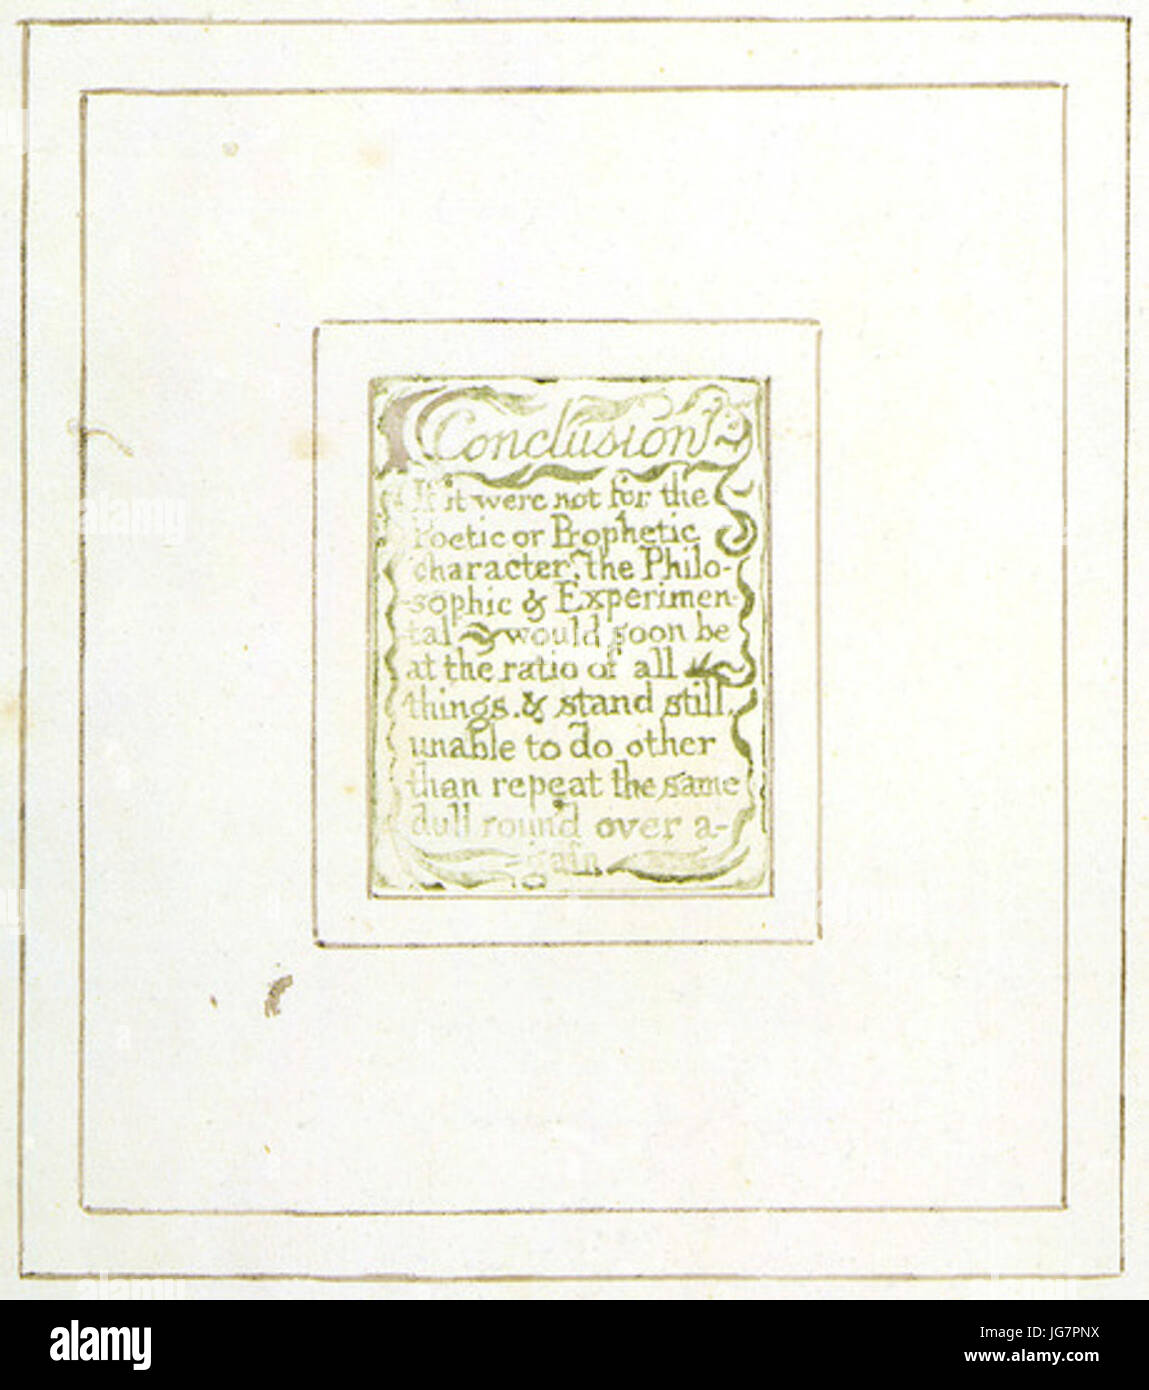 Conclusion
If it were not for the
Poetic or Prophetic
character. the Philo-
-sophic & Experimen-
-tal would soon be
at the ratio of all
things. & stand still,
unable to do other
than repeat the same
dull round over a-
-gain
alamy
alamy
Image ID: JG7PNX
www.alamy.com